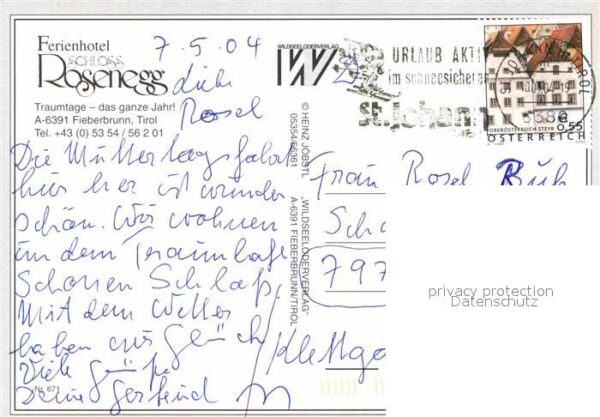 Ferienhotel
SCHLOSS
Rosenegg
Traumtage – das ganze Jahr!
A-6391 Fieberbrunn, Tirol
Tel. +43 (0) 53 54 / 56 2 01
7.5.04
Rosel
Die Muttertagsfahrt
hier her ist wunder
schön. Wir wohnen
in dem Traumhaft
Schönen Schloß.
Mit dem Wetter
haben wir Glück
Viele Grüße
Deine Gertrud
Nr. 671
WILDSEELODERVERLAG
W
© HEINZ JÖBSTL
05354/56361
„WILDSEELODERVERLAG"
A-6391 FIEBERBRUNN/TIROL
URLAUB AKTIV
im schneesicheren
st.johann
OBERÖSTERREICH STEYR
€ 0,55
ÖSTERREICH
Frau Rosel
797
Klettga
privacy protection
Datenschutz